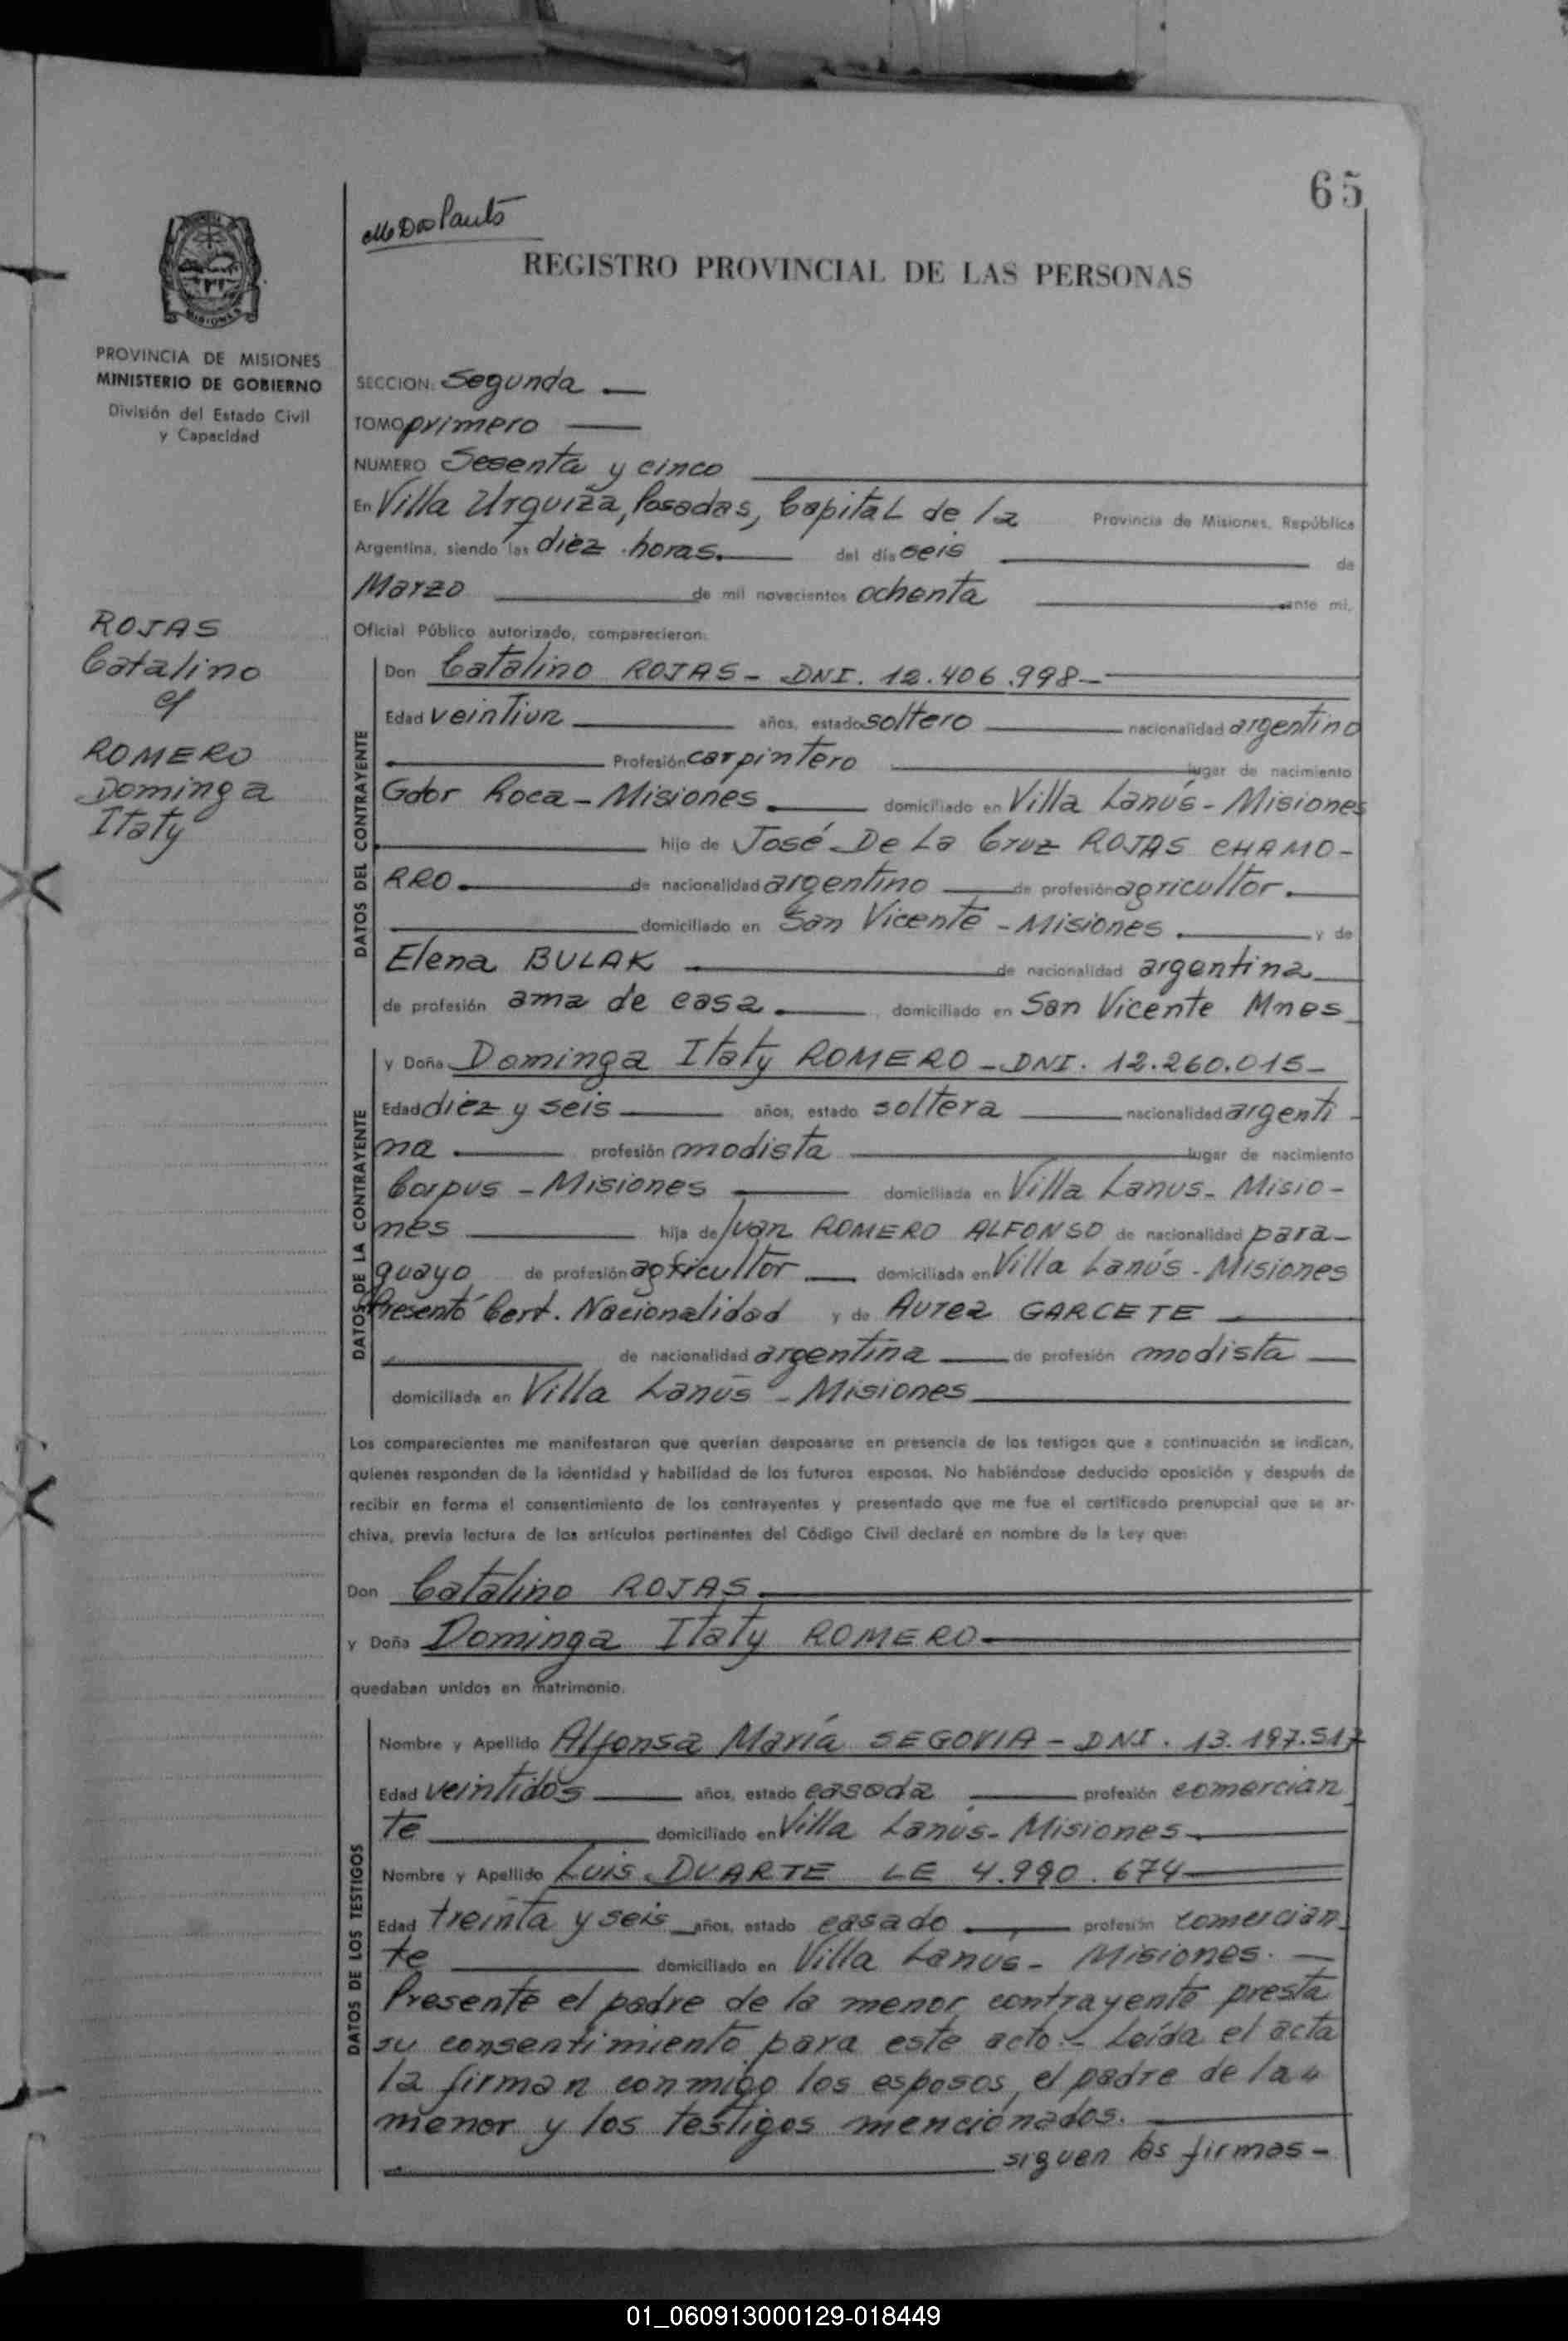 65
REGISTRO PROVINCIAL DE LAS PERSONAS
MISIONES
PROVINCIA DE MISIONES
MINISTERIO DE GOBIERNO
División del Estado Civil
y Capacidad
SECCION: Segunda —
TOMO primero —
NUMERO Sesenta y cinco
En Villa Urquiza, Posadas, Capital de la Provincia de Misiones, República
Argentina, siendo las diez horas. — del día seis — de
Marzo — de mil novecientos ochenta — ante mi,
Oficial Público autorizado, comparecieron:
ROJAS
Catalino
c/
ROMERO
Dominga
Itaty
DATOS DEL CONTRAYENTE
Don Catalino ROJAS - DNI. 12.406.998 -
Edad veintiun — años, estado soltero — nacionalidad argentino
— Profesión carpintero — lugar de nacimiento
Gdor Roca - Misiones. — domiciliado en Villa Lanús - Misiones
— hijo de José De La Cruz ROJAS CHAMO-
RRO. — de nacionalidad argentino — de profesión agricultor. —
— domiciliado en San Vicente - Misiones. — y de
Elena BULAK — de nacionalidad argentina —
de profesión ama de casa. — domiciliado en San Vicente Mnes
DATOS DE LA CONTRAYENTE
y Doña Dominga Itaty ROMERO - DNI. 12.260.015 -
Edad diez y seis — años, estado soltera — nacionalidad argenti-
na — profesión modista — lugar de nacimiento
Corpus - Misiones — domiciliada en Villa Lanus - Misio-
nes — hija de Juan ROMERO ALFONSO de nacionalidad para-
guayo de profesión agricultor — domiciliada en Villa Lanús - Misiones
Presentó Cert. Nacionalidad y de Aurea GARCETE —
— de nacionalidad argentina — de profesión modista —
domiciliada en Villa Lanús - Misiones —
Los comparecientes me manifestaron que querían desposarse en presencia de los testigos que a continuación se indican,
quienes responden de la identidad y habilidad de los futuros esposos. No habiéndose deducido oposición y después de
recibir en forma el consentimiento de los contrayentes y presentado que me fue el certificado prenupcial que se ar-
chiva, previa lectura de los artículos pertinentes del Código Civil declaré en nombre de la Ley que:
Don Catalino ROJAS. —
y Doña Dominga Itaty ROMERO —
quedaban unidos en matrimonio.
DATOS DE LOS TESTIGOS
Nombre y Apellido Alfonsa María SEGOVIA - DNI. 13.197.517
Edad veintidos — años, estado casada — profesión comercian
te — domiciliado en Villa Lanús - Misiones. —
Nombre y Apellido Luis DUARTE LE 4.990.674 —
Edad treinta y seis — años, estado casado — profesión comercian
te — domiciliado en Villa Lanus - Misiones. —
Presente el padre de la menor contrayente presta
su consentimiento para este acto. - Leída el acta
la firman conmigo los esposos, el padre de la
menor y los testigos mencionados. —
— siguen las firmas -
01_060913000129-018449